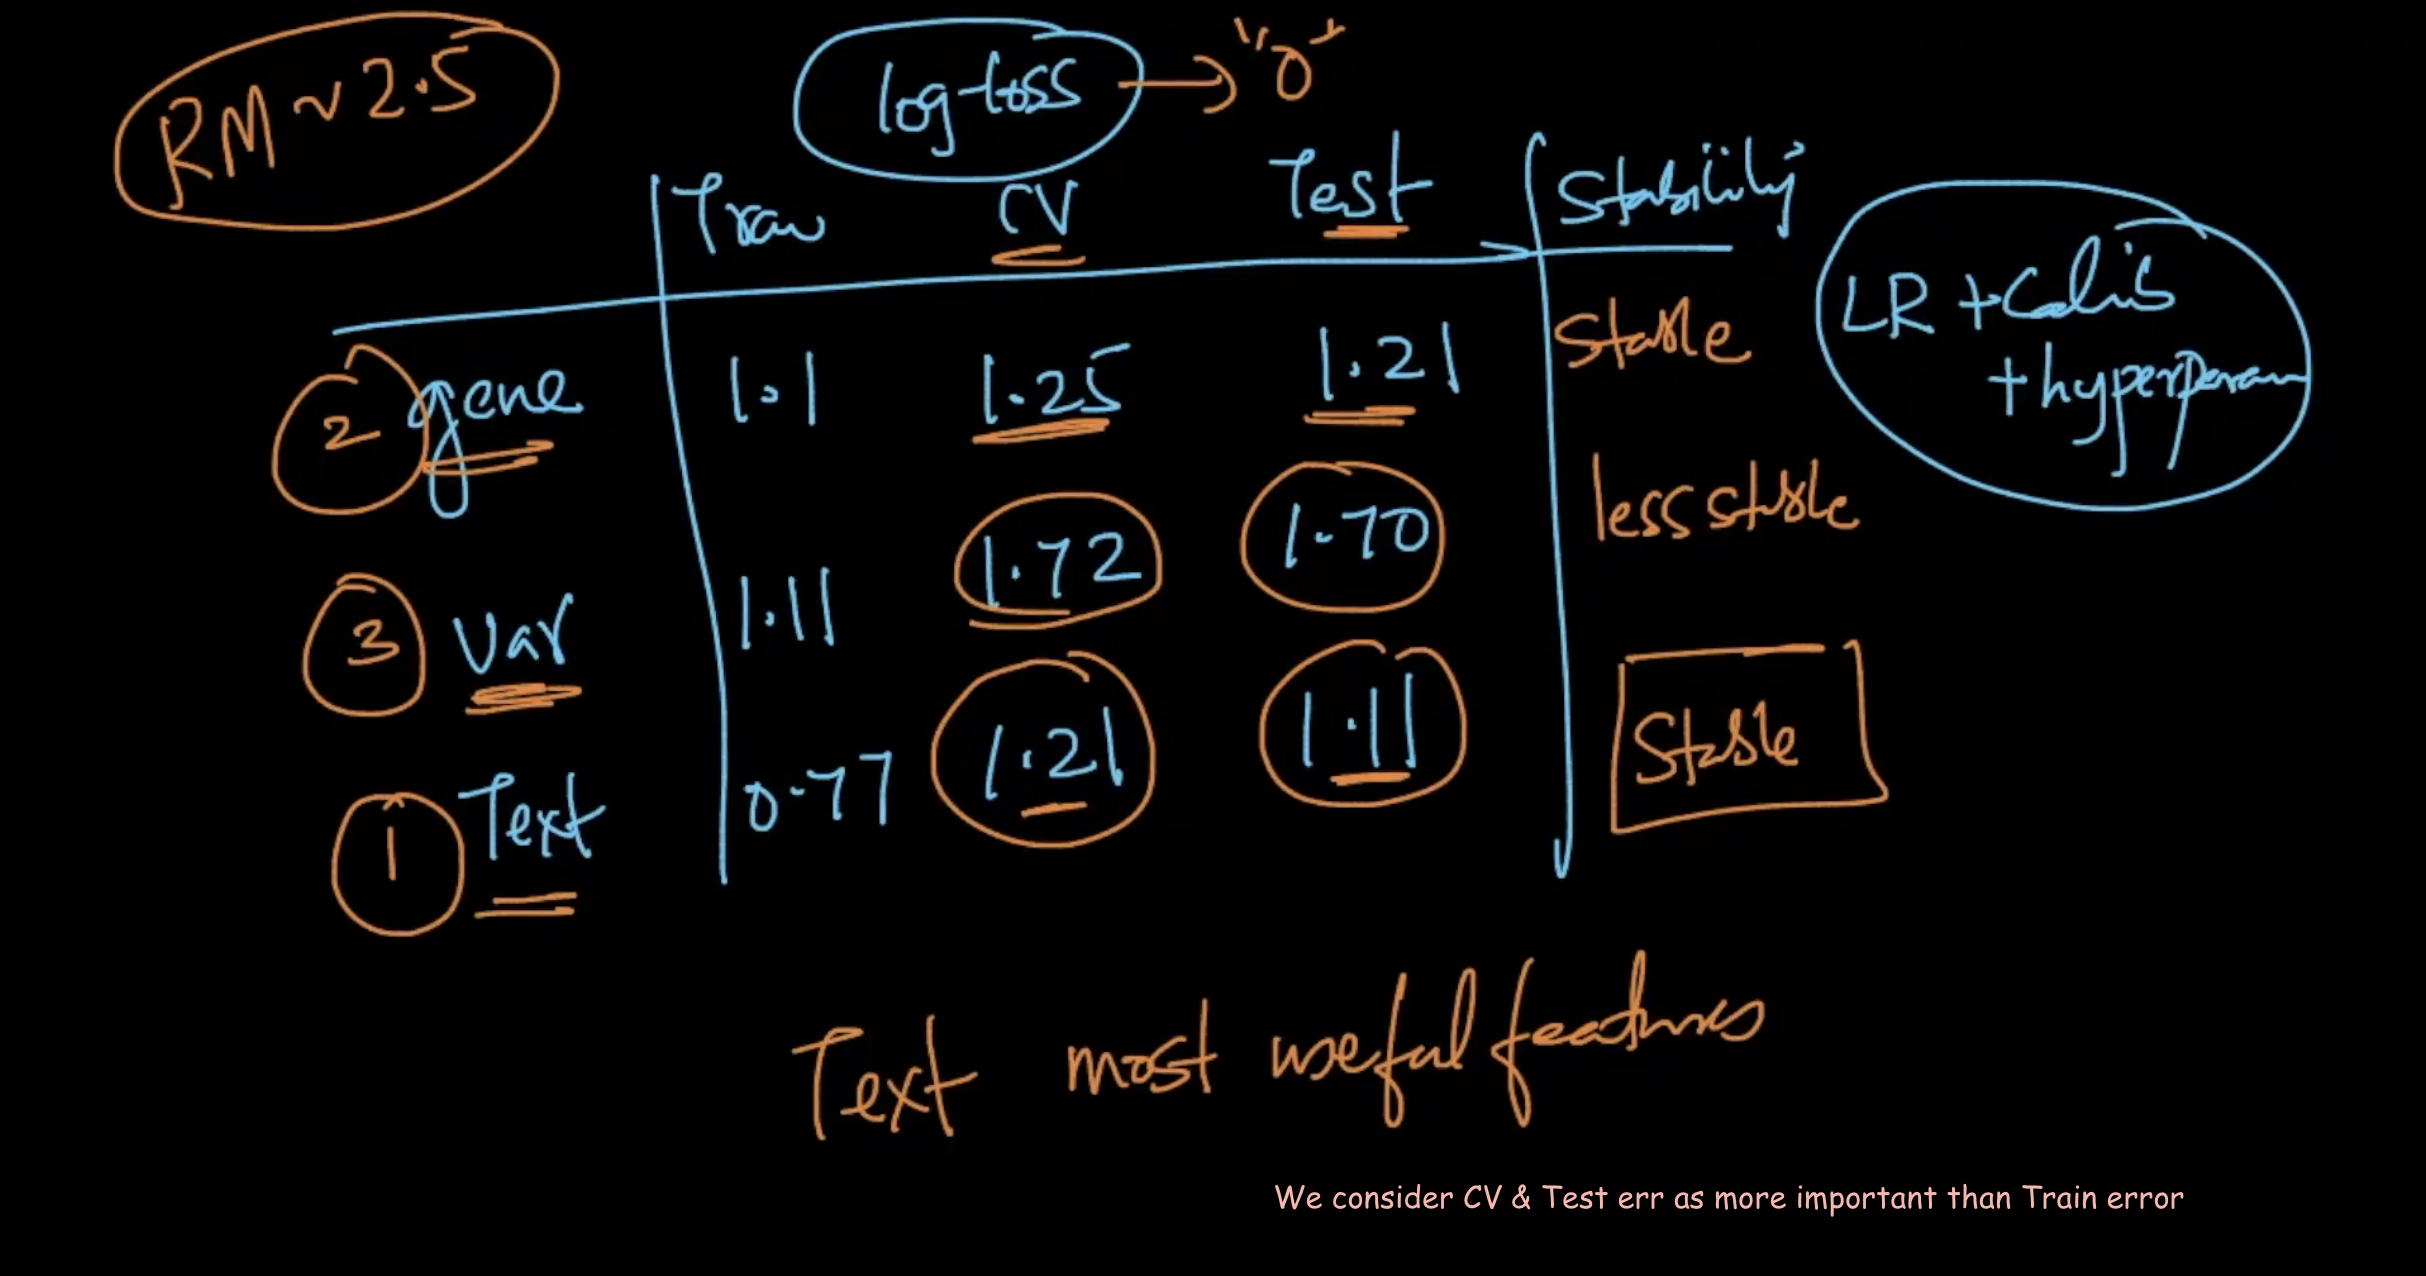 RM ~ 2.5
log-loss → "0"
Train CV Test Stability
2 gene 1.1 1.25 1.21 Stable
3 Var 1.11 1.72 1.70 less stable
1 Text 0.77 1.21 1.11 Stable
LR + Calib
+ hyperparam
Text most useful features
We consider CV & Test err as more important than Train error